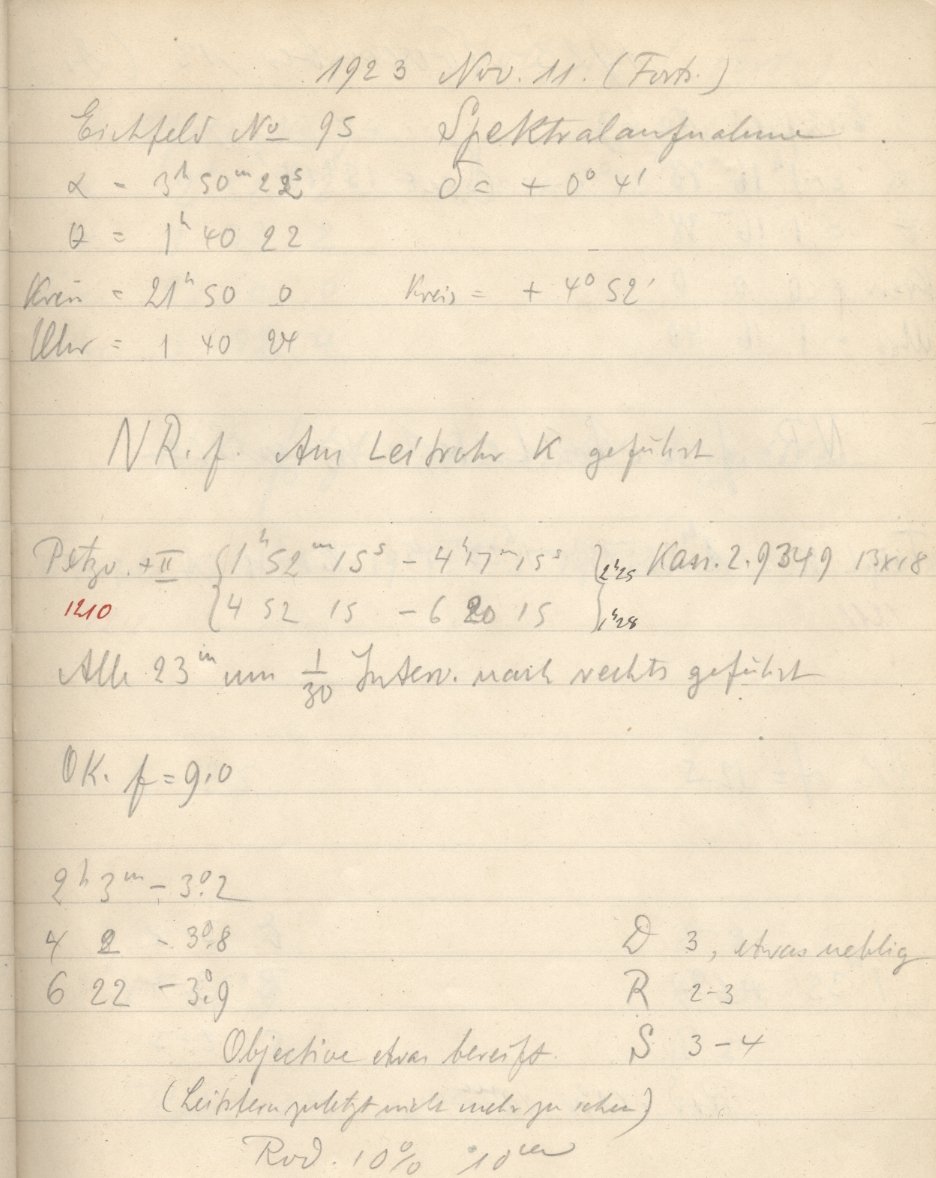 1923 Nov. 11. (Forts.)
Eichfeld No 95 Spektralaufnahme
α = 3h 50m 22s δ = + 0° 4'
θ = 1h 40 22
Kreis = 21h 50 0 Kreis = + 4° 52'
Uhr = 1 40 24
NR. f. Am Leitrohr K geführt
Petzv. + II {1h 52m 15s – 4h 17m 15s} 2h25 Kass. 2. 9349 13x18
1210 {4 52 15 – 6 20 15} 1h28
Alle 23m um 1/30 Interv. nach rechts geführt
OK. f = 9.0
2h 3m – 3°.2
4 2 – 3°.8 D 3, etwas neblig
6 22 – 3°.9 R 2-3
Objective etwas bereift. S 3-4
(Leitstern zuletzt nicht mehr zu sehen)
Rod. 10% 10